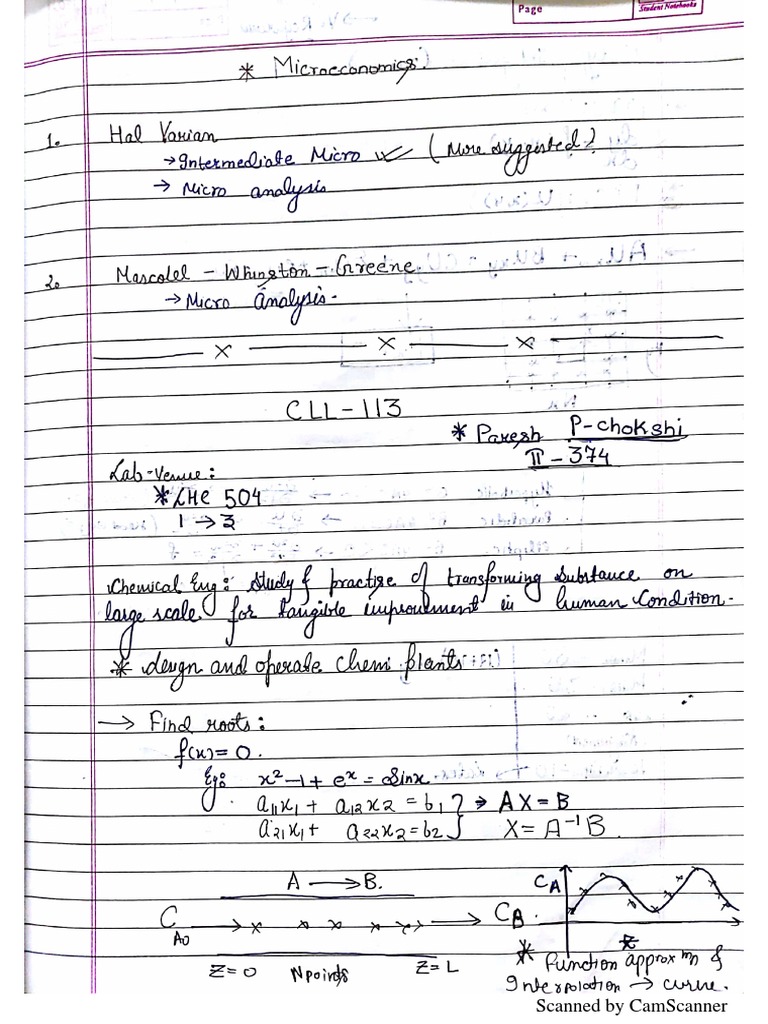 Page
Student Notebooks
* Microeconomics:
1. Hal Varian
→ Intermediate Micro ✓ (More suggested?
→ Micro analysis
2. Mascolel - Whington - Greene
→ Micro Analysis -
x x x
CLL - 113
* Paresh P-chokshi
II - 374
Lab-Venue:
* LHC 504
1 → 3
Chemical Eng: Study & practise of transforming Substance on
large scale for tangible improvement in human Condition.
* design and operate Chemi plants
→ Find roots:
f(x) = 0.
Eg: x² - 1 + eˣ = Sinx
a₁₁x₁ + a₁₂x₂ = b₁ } → AX = B
a₂₁x₁ + a₂₂x₂ = b₂ } X = A⁻¹B
A → B.
C_A
C_A0 → x x x x x x → C_B.
z
Z=0 N points Z=L
* Function approx mn &
Interpolation → curve.
Scanned by CamScanner